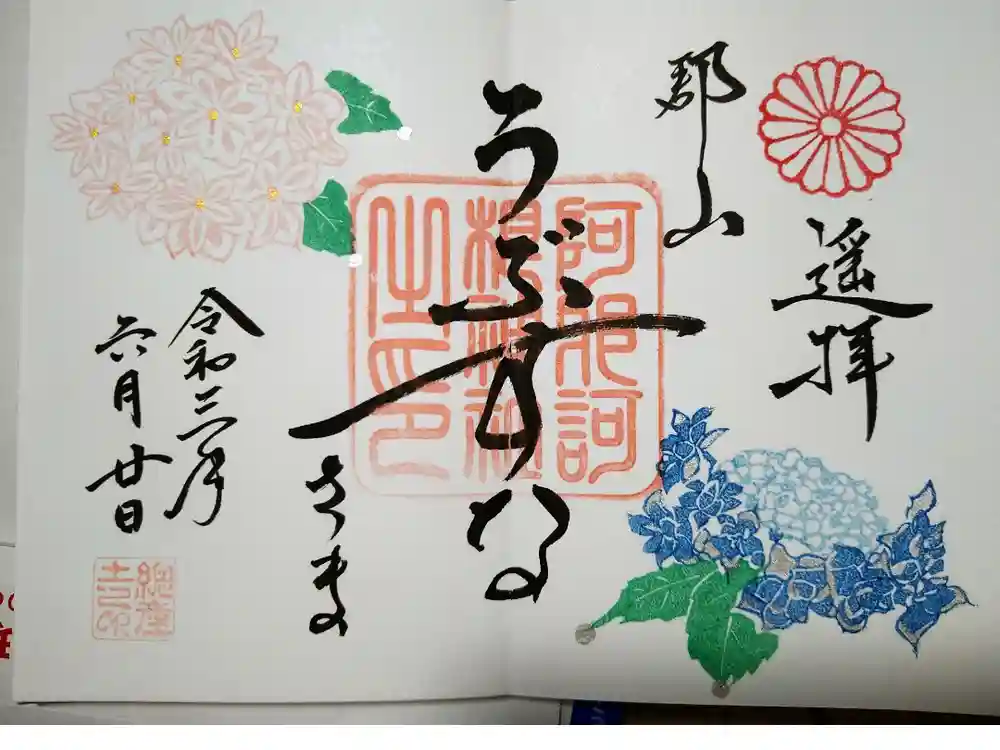 遥拝
郡山
うぶすな
さま
令和三年
六月廿日
阿邪訶
根神社
之印